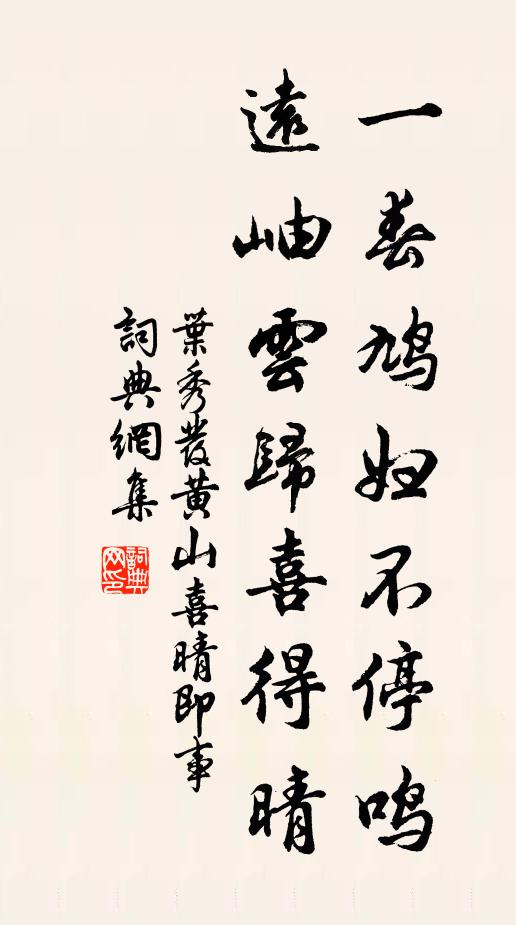 一春鸠妇不停鸣
遠岫雲歸喜得晴
葉秀發黄山喜晴即事
詞典網集
詞典网印